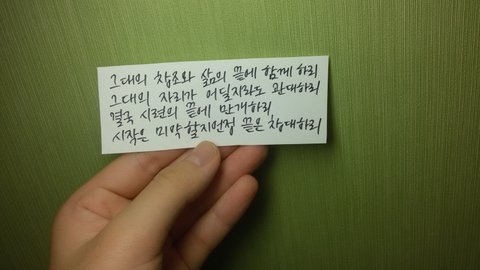 그대의 창조와 삶의 끝에 함께 하리
그대의 자리가 어딜지라도 관대하리
결국 시련의 끝에 만개하리
시작은 미약할지언정 끝은 창대하리